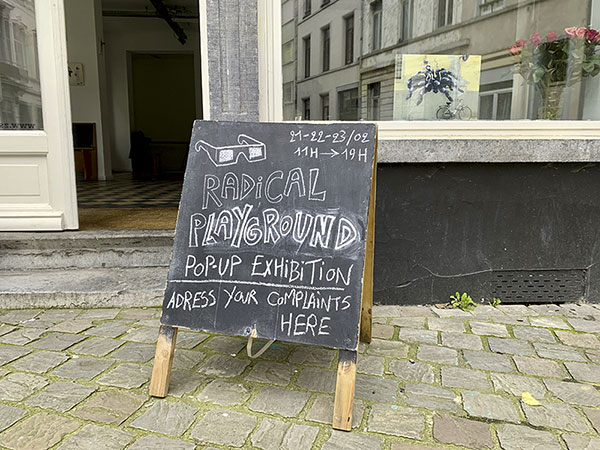 21-22-23/02
11H→19H
RADiCAL
PLAYGROUND
POP-UP EXHiBiTiON
ADRESS YOUR COMPLAiNTS
HERE